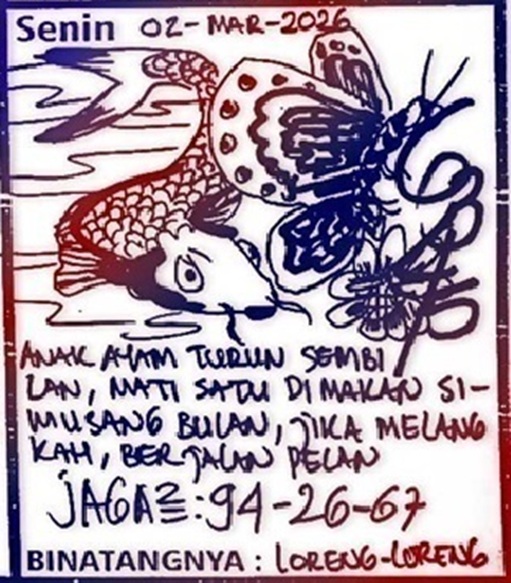 Senin 02-MAR-2026
ANAK AYAM TURUN SEMBI
LAN, MATI SATU DIMAKAN SI-
MUSANG BULAN, JIKA MELANG
KAH, BERJALAN PELAN
JAGA2 : 94-26-67
BINATANGNYA : LORENG-LORENG